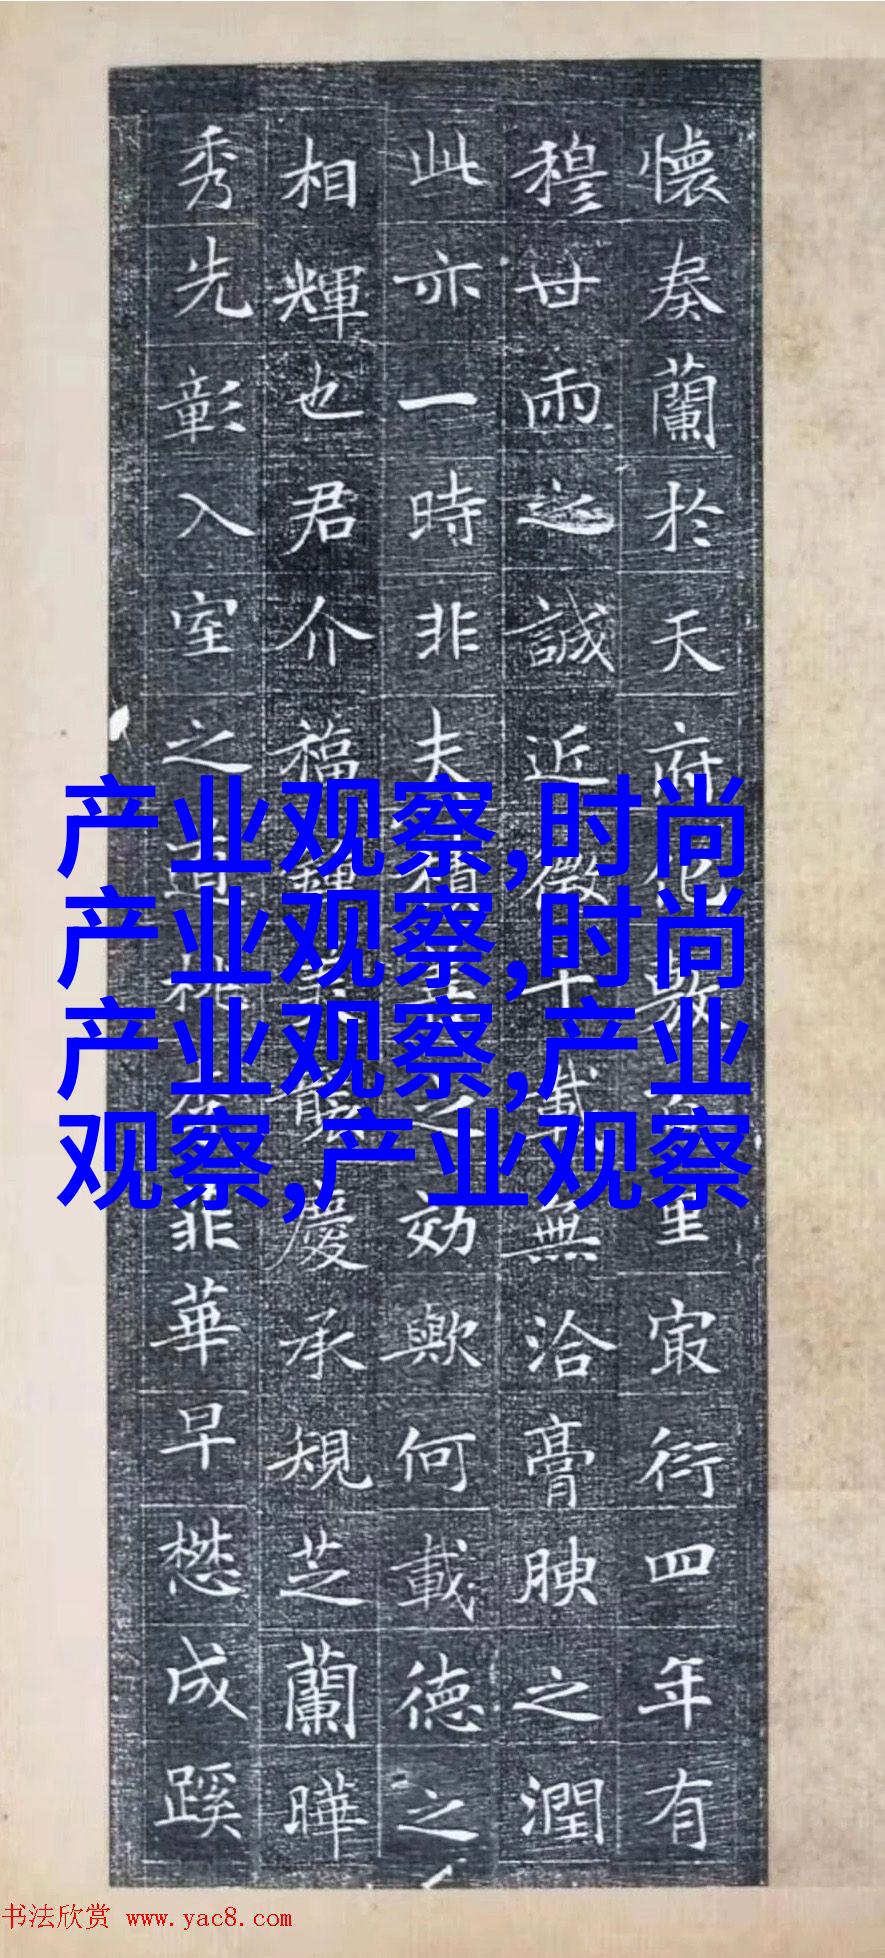 懷奏蘭於天府 里㝡衍四年有
穆世雨之誠近徵十載無洽膏腴之潤
此亦一時非夫積 之効歟何載德之
相輝也君介福 慶承規芝蘭曄
秀先彰入室之道桃 華早懋成蹊
产业观察,时尚
产业观察,时尚
产业观察,产业
观察,产业观察
书法欣赏 www.yac8.com